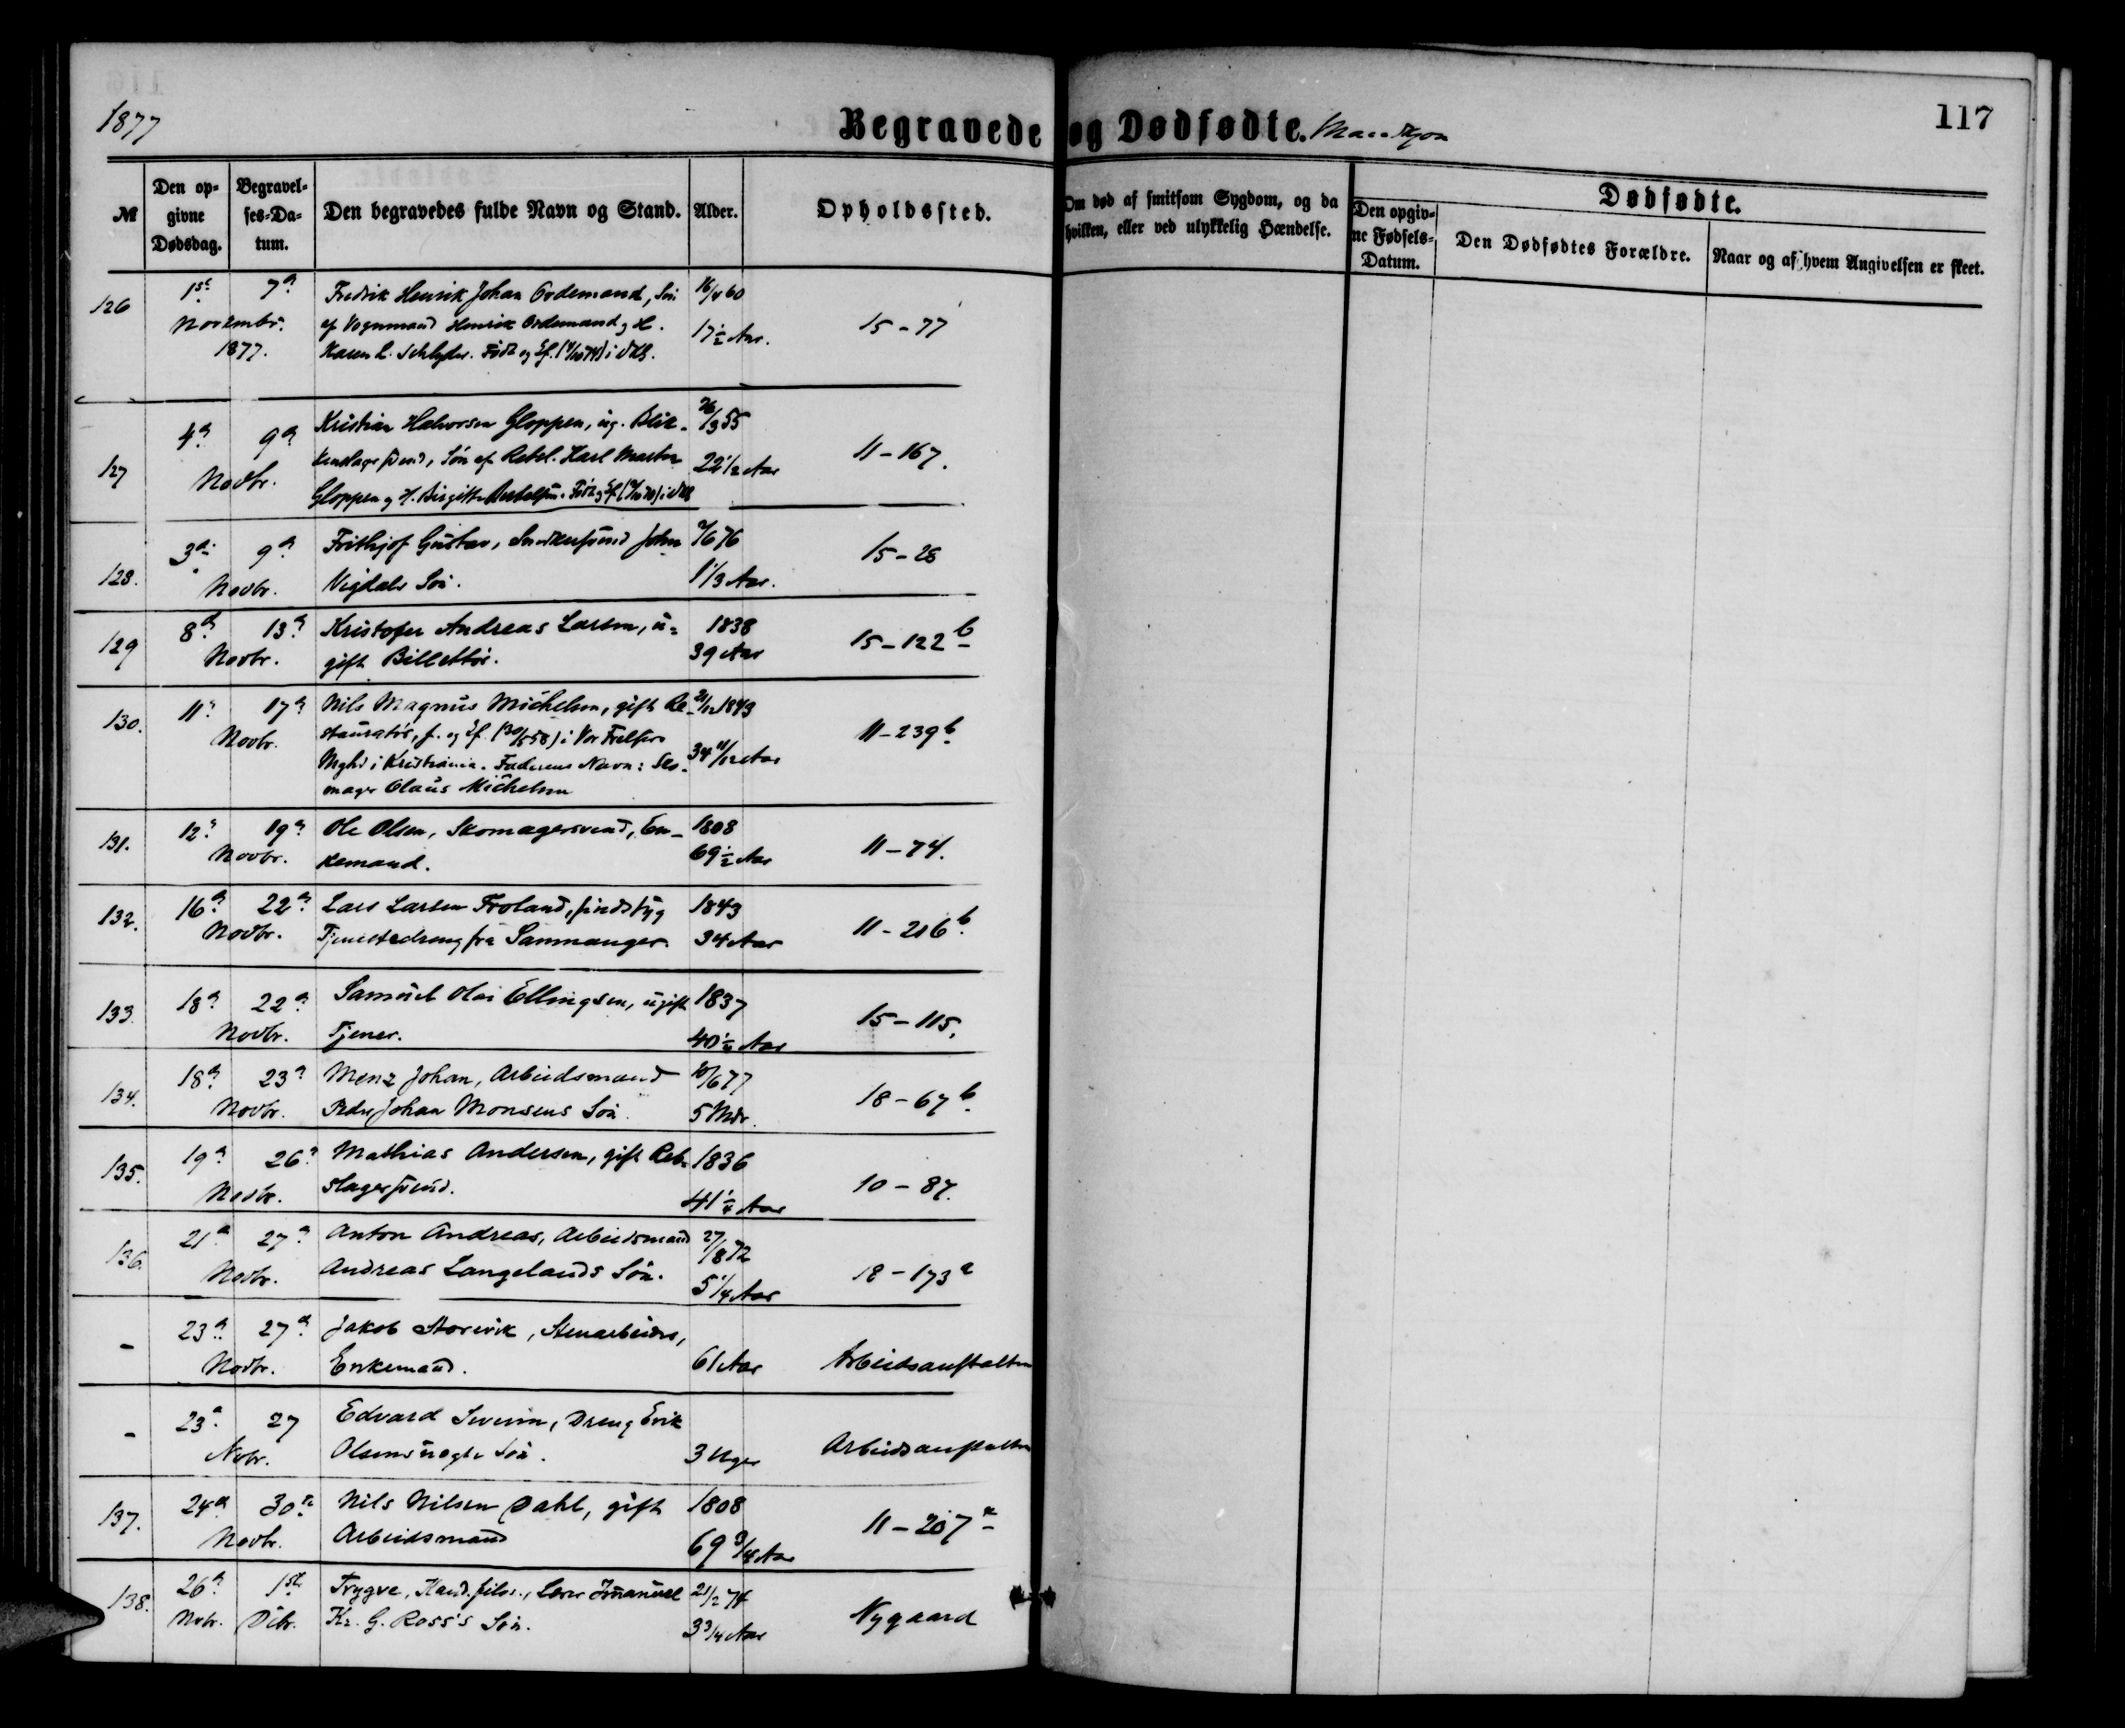 1877
Begravede og Dødfødte. Mandkjøn
117
№
Den opgivne Dødsdag.
Begravelses-Datum.
Den begravedes fulde Navn og Stand.
Alder.
Opholdssted.
Om død af smitsom Sygdom, og da hvilken, eller ved ulykkelig Hændelse.
Dødfødte.
Den opgivne Fødsels-Datum.
Den Dødfødtes Forældre.
Naar og af hvem Angivelsen er skeet.
126 1ste 7de Fredrik Henrik Johan Ordemand, Søn 16/4 60
Novembr. af Vognmand Henrik Ordemand og H. 17½ Aar. 15-77
1877. Karen L. Født og i
127 4de 9de Kristian Halvorsen Gloppen, ug. Blik- 26/3 55
Novbr. kenslagersvend, Søn af Karl Martin 22½ Aar 11-167.
Gloppen og H. Birgitte
128. 3die 9de Frithjof Gustav, Snedkersvend John 76
Novbr. Vigdals Søn. 1⅓ Aar. 15-28
129 8de 13de Kristofer Andreas Larsen, u- 1838
Novbr. gift Billettør. 39 Aar 15-122b
130. 11te 17de Nils Magnus Michelsen, gift Re- 21/12 1843
Novbr. stauratør, f. og i Vor Frelsers
Mghd i Kristiania. Faderens Navn: Sko- 34 11/12 Aar 11-239b
mager Olaus Michelsen
131. 12te 19de Ole Olsen, Skomagersvend, En- 1808
Novbr. kemand. 69½ Aar 11-74.
132. 16de 22de Lars Larsen Froland, sindssyg 1843
Novbr. Tjenestedreng fra Sammanger. 34 Aar 11-216b
133. 18de 22de Samuel Olai Ellingsen, ugift 1837
Novbr. Tjener. 40½ Aar 15-115.
134. 18de 23de Menz Johan, Arbeidsmand 10/6 77
Novbr. Peder Johan Monsens Søn. 5 Mdr. 18-67b
135. 19de 26de Mathias Andersen, gift Reb- 1836
Novbr. slagersvend. 41¼ Aar 10-87.
136. 21de 27de Anton Andreas, Arbeidsmand 27/8 72
Novbr. Andreas Langelands Søn. 5¼ Aar 18-173a
- 23de 27de Jakob Storevik, Stenarbeider,
Novbr. Enkemand. 61 Aar Arbeidsanstalten
- 23de 27 Edvard Severin, Dreng Erik
Nvbr. Olsens uægte Søn. 3 Uger Arbeidsanstalten
137. 24de 30te Nils Nilsen Dahl, gift 1808
Novbr. Arbeidsmand 69¾ Aar 11-207a
138. 26de 1ste Trygve, Kand. filos., Lærer Imanuel 21/2 74
Nvbr. Dcbr. Kr. G. Ross's Søn. 3¾ Aar Nygaard